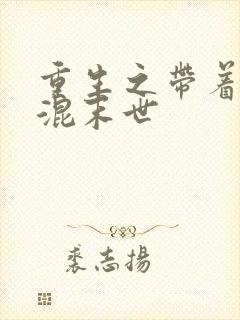 重生之帶着
混末世
裘志揚